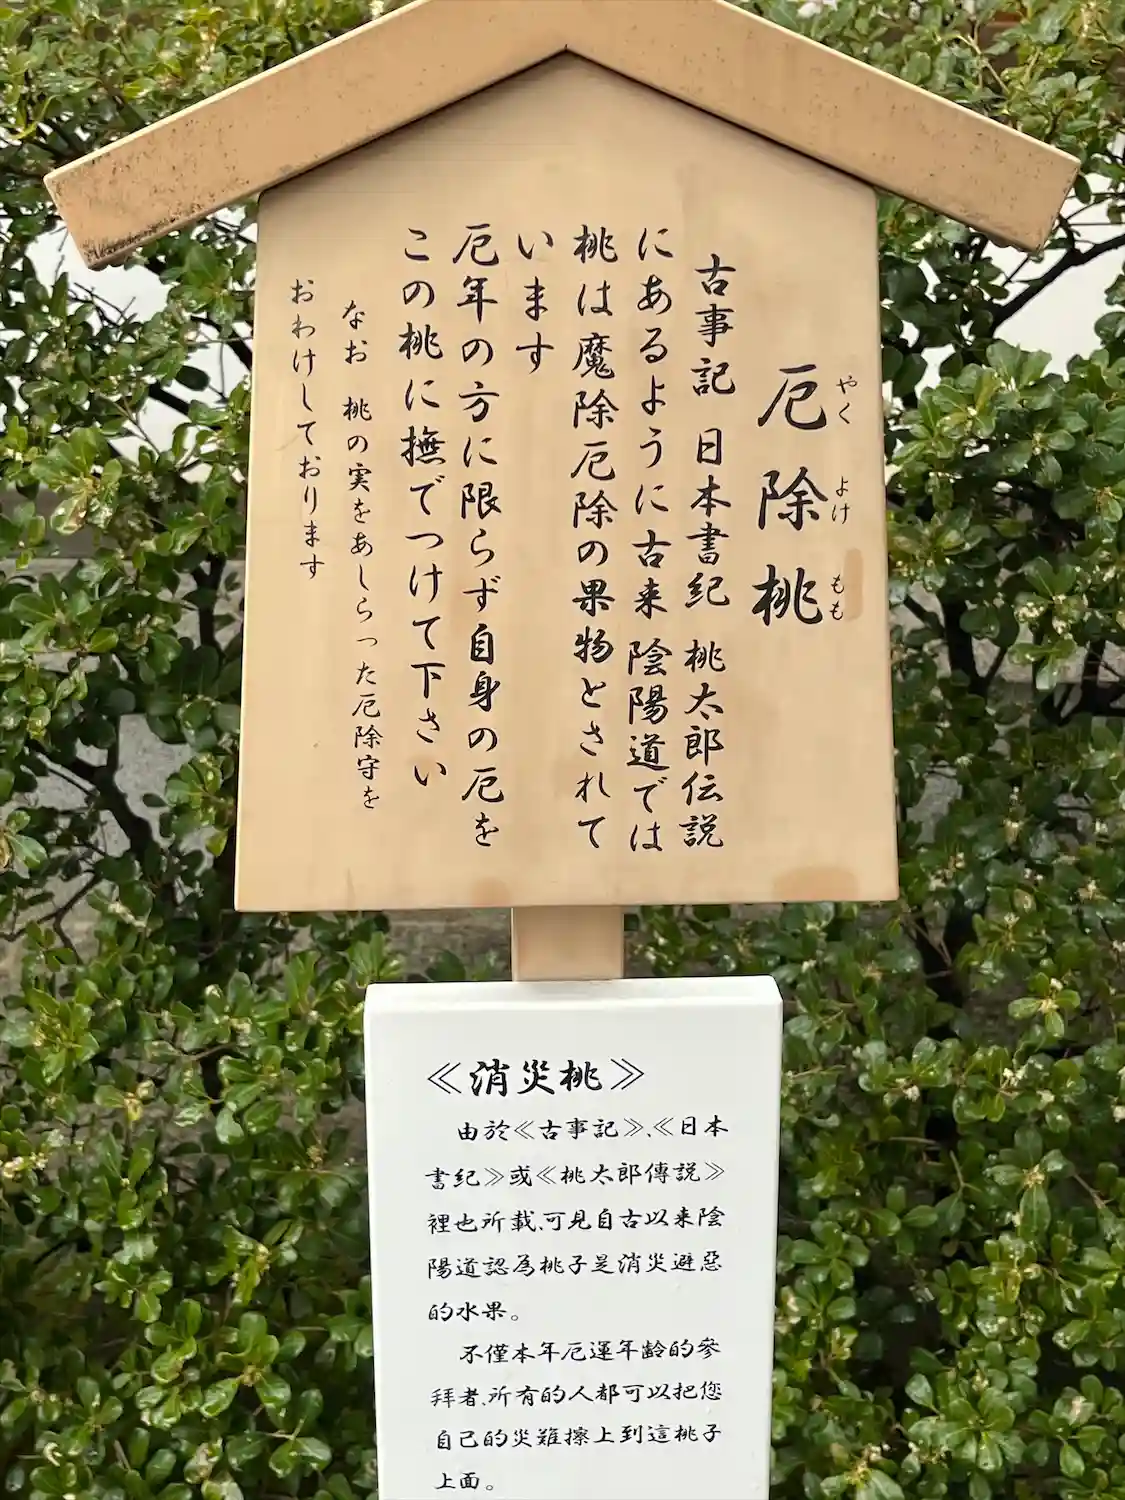 厄除桃
やく
よけ
もも
古事記 日本書紀 桃太郎伝説
にあるように古来 陰陽道では
桃は魔除厄除の果物とされて
います
厄年の方に限らず自身の厄を
この桃に撫でつけて下さい
なお 桃の実をあしらった厄除守を
おわけしております
≪消災桃≫
由於≪古事記≫、≪日本
書紀≫或≪桃太郎傳説≫
裡也所載、可見自古以来陰
陽道認為桃子是消災避惡
的水果。
不僅本年厄運年齢的參
拜者、所有的人都可以把您
自己的災難擦上到這桃子
上面。